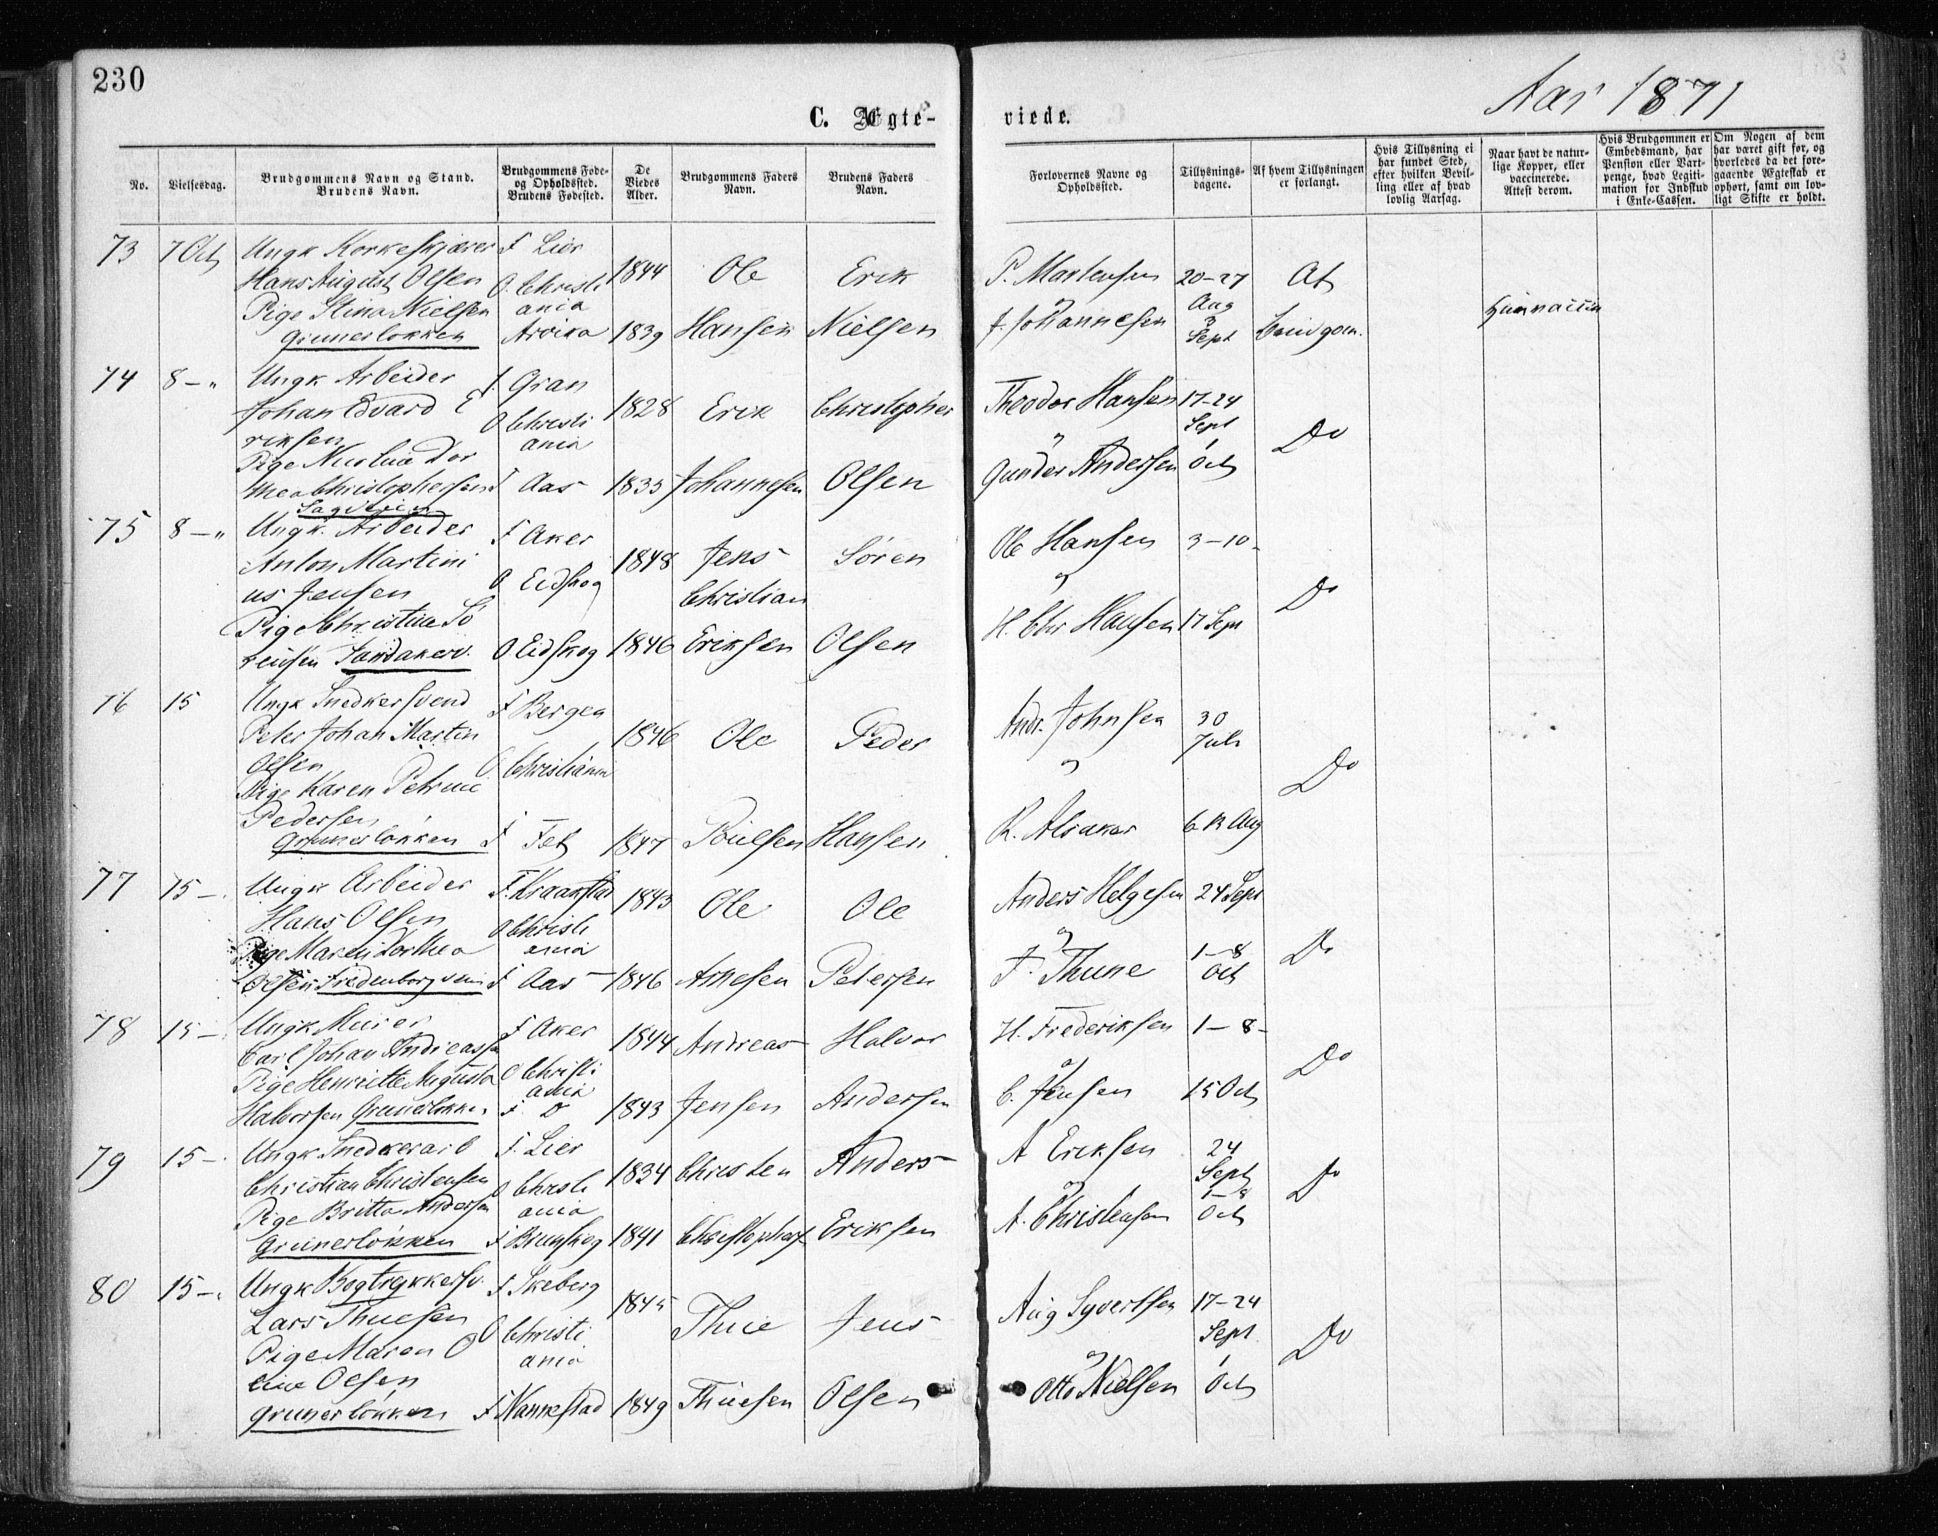 230
Aar 1871
C. Ægte-
viede.
No.
Vielsesdag.
Brudgommens Navn og Stand.
Brudens Navn.
Brudgommens Føde-
og Opholdssted.
Brudens Fødested.
De
Viedes
Alder.
Brudgommens Faders
Navn.
Brudens Faders
Navn.
Forlovernes Navne og
Opholdssted.
Tillysnings-
dagene.
Af hvem Tillysningen
er forlangt.
Hvis Tillysning ei
har fundet Sted,
efter hvilken Bevil-
ling eller af hvad
lovlig Aarsag.
Naar havt de natur-
lige Kopper, eller
vaccinerede.
Attest derom.
Hvis Brudgommen er
Embedsmand, har
Pension eller Vart-
penge, hvad Legiti-
mation for Indskud
i Enke-Cassen.
Om Nogen af dem
har været gift før, og
hvorledes da det fore-
gaaende Ægteskab er
ophørt, samt om lov-
ligt Skifte er holdt.
73 7 Oct Ungk Korkeskjærer F Lier
Hans August Olsen O. Christi 1844 Ole Erik P. Martensen 20-27 Af
Pige Stina Nielsen ania og Aug
Grunerløkken Arvika 1839 Hansen Nielsen J. Johannesen 3 Sept brudgom.
74 8 - " Ungk Arbeider F. Gran
Johan Edvard E O Christi 1828 Erik Christopher Theodor Hansen 17-24
riksen ania og Sept Do
Pige Nicolia Dor
thea Christophersen F Aas 1835 Johannesen Olsen Gunder Andersen 1 Oct
75 8 - " Ungk. Arbeider F Aker
Anton Martini 1848 Jens Søren Ole Hansen 3-10-
us Jensen O Eidskog Christian og Do
Pige Christine Sø
rensen Sandakerv. O Eidskog 1846 Eriksen Olsen H. Chr Hansen 17 Sept
76 15 Ungk Snedkersvend F Bergen
Peter Johan Martin 1846 Ole Peder Andr. Johnsen 30
Olsen O Christiania og Juli Do
Pige Karen Petrine
Pedersen
Grunerløkken F Fet 1847 Poulsen Hansen K. Alsaker 6 13 Aug
77 15 - Ungk Arbeider F. Kraakstad 1843 Ole Ole Anders Helgesen 24 Sept
Hans Olsen O Christi
Pige Maren Dorthea ania og 1-8 Do
Olsen Fredenborgvein F Aas 1846 Arnesen Petersen F. Thune Oct
78 15 - Ungk Murer F Aker 1844 Andreas Halvor H. Frederiksen 1-8-
Carl Johan Andreassen
Pige Henriette Augusta O Christi ania og Do
Halvorsen Grunerløkken F. Do 1843 Jensen Andersen C. Jensen 15 Oct
79 15 - Ungk Snedkerarb F. Lier
Christian Christensen O Christi 1834 Christen Anders A Eriksen 24 Sept
Pige Britta Andersen ania og 1-8 Do
Grunerløkken F Brunskog 1841 Christophers Eriksen A. Christensen Oct
80 15 - Ungk Bogtrykkersv. F Skeberg
Lars Thuesen 1845 Thue Jens Aug Syvertsen 17-24
Pige Maren O O Christi og Sept. Do
line Olsen ania
Grunerløkken F Nannestad 1849 Thuesen Olsen Otto Nielsen 1 Oct